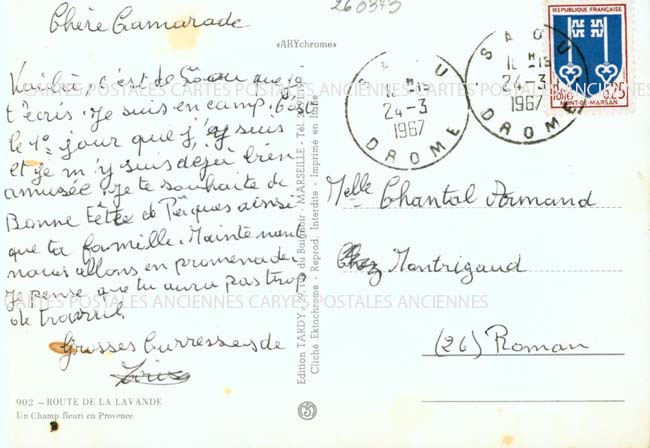 260373
Chère Camarade
«ARYchrome»
Voilà, c'est de Saou que je
t'écris. Je suis en camp. C'est
le 1° jour que j'y suis
et je m'y suis déjà bien
amusée. Je te souhaite de
Bonne fête de Pâques ainsi
que ta famille. Maintenant
nous allons en promenade.
Je pense que tu aura pas trop
de travail.
Grosses Carresses de
902 — ROUTE DE LA LAVANDE
Un Champ fleuri en Provence
Edition TARDY, rue du Baignoir - MARSEILLE - Tél.
Cliché Ektachrome - Reprod. Interdite - Imprimé en Italie
SAOU
24-3
1967
DROME
SAOU
24-3
1967
DROME
REPUBLIQUE FRANÇAISE
POSTES 0,25
MONT-DE-MARSAN
Melle Chantal Armand
Chez Montrigaud
(26) Roman
CARTES POSTALES ANCIENNES CARTES POSTALES ANCIENNES
CARTES POSTALES ANCIENNES CARYES POSTALES ANCIENNES